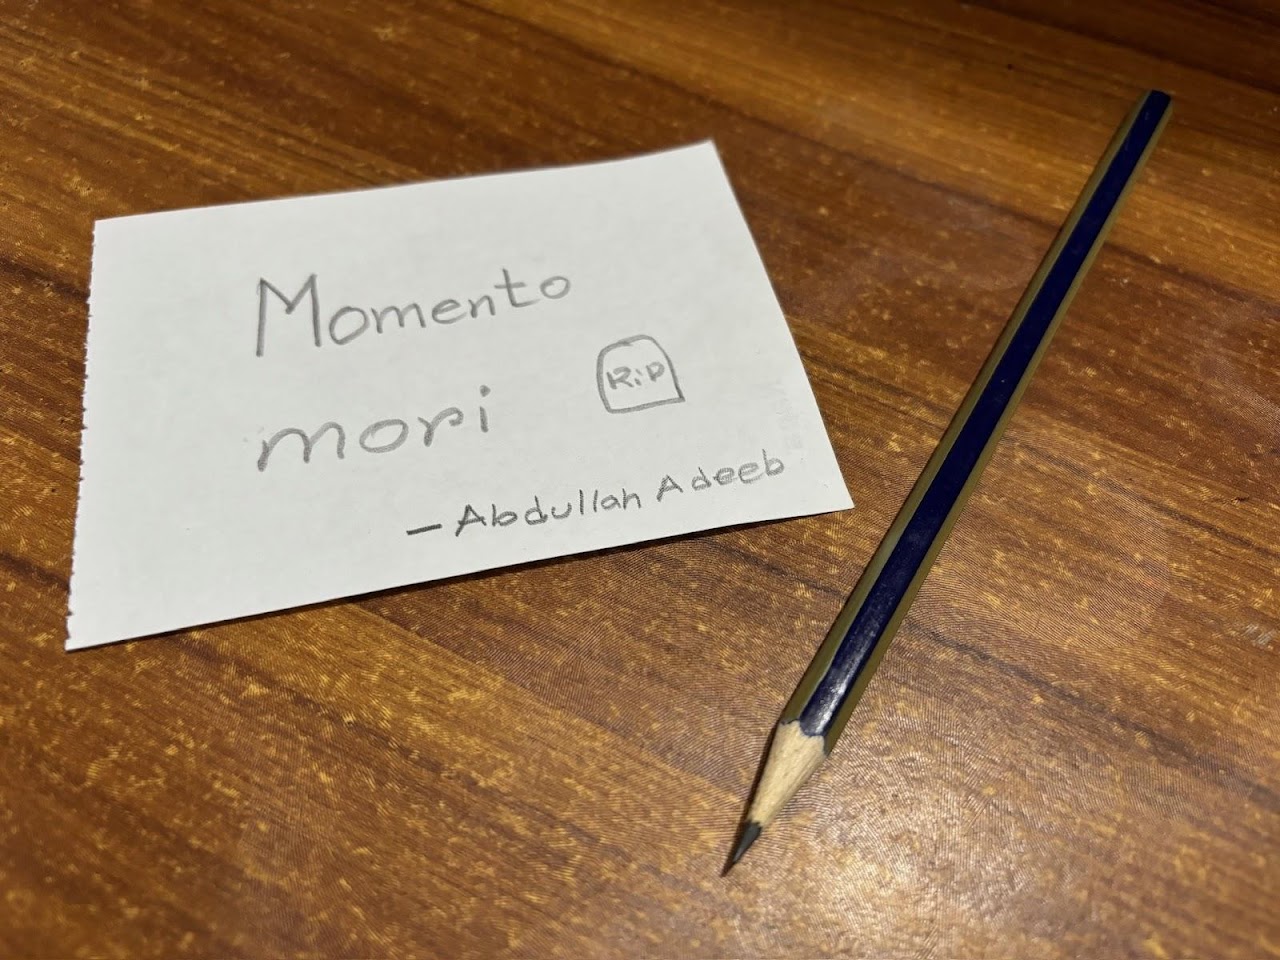 Momento
mori
RiP
- Abdullah Adeeb